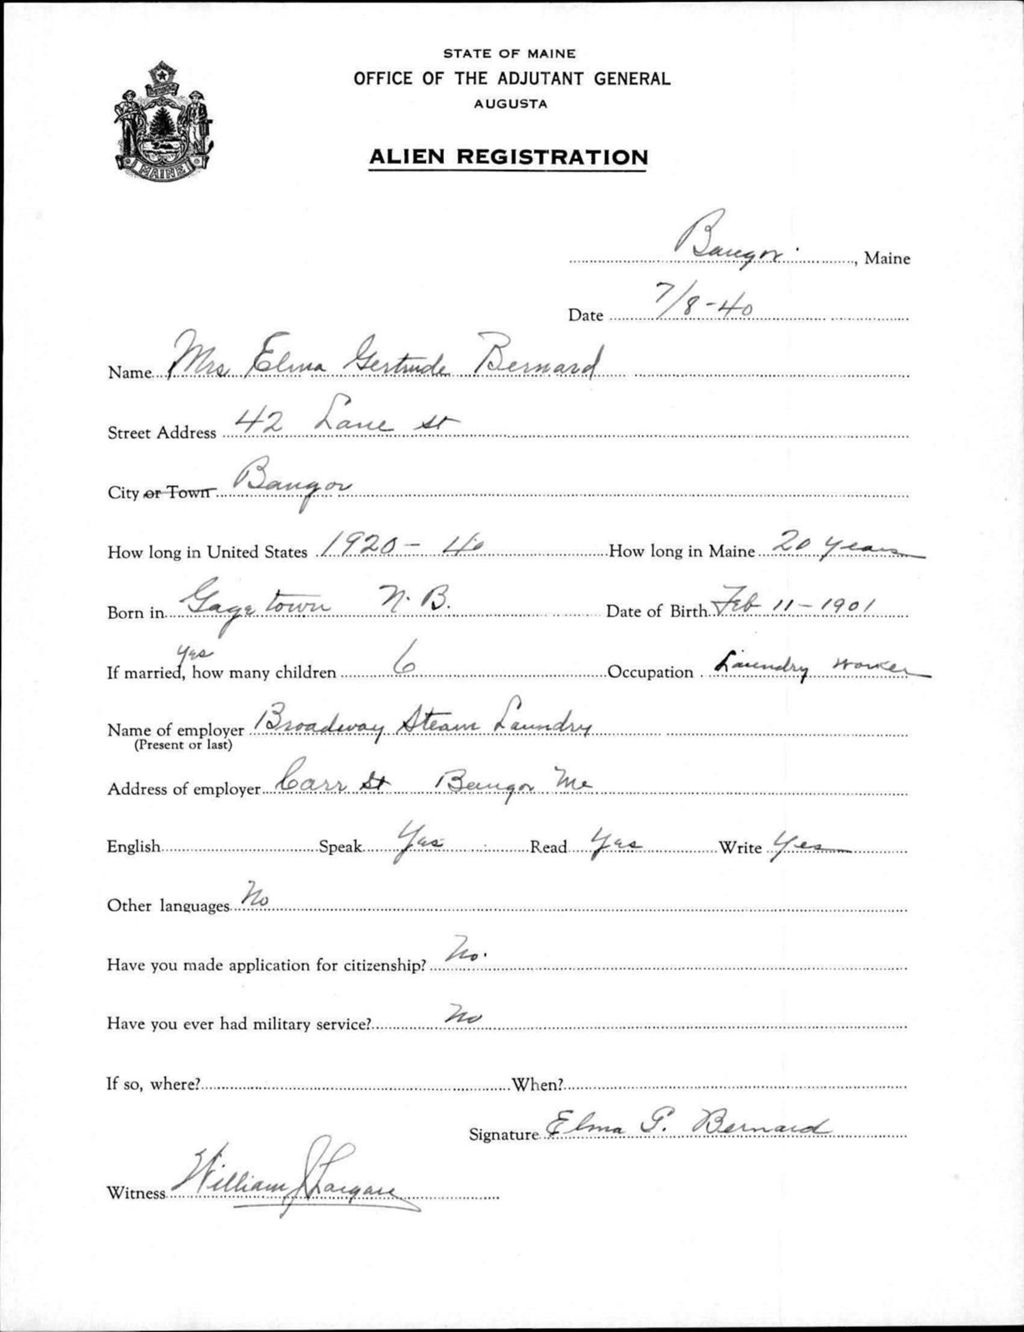 STATE OF MAINE
OFFICE OF THE ADJUTANT GENERAL
AUGUSTA
ALIEN REGISTRATION
MAINE
Bangor, Maine
Date 7/8-40
Name Mrs Elma Gertrude Bernard
Street Address 42 Lane St
City or Town Bangor
How long in United States 1920-40 How long in Maine 20 years
Born in Gagetown N.B. Date of Birth Feb 11-1901
yes
If married, how many children 6 Occupation Laundry Worker
Name of employer Broadway Steam Laundry
(Present or last)
Address of employer Carr St Bangor Me
English Speak Yes Read Yes Write Yes
Other languages No
Have you made application for citizenship? No.
Have you ever had military service? No
If so, where? When?
Signature Elma G. Bernard
Witness William J